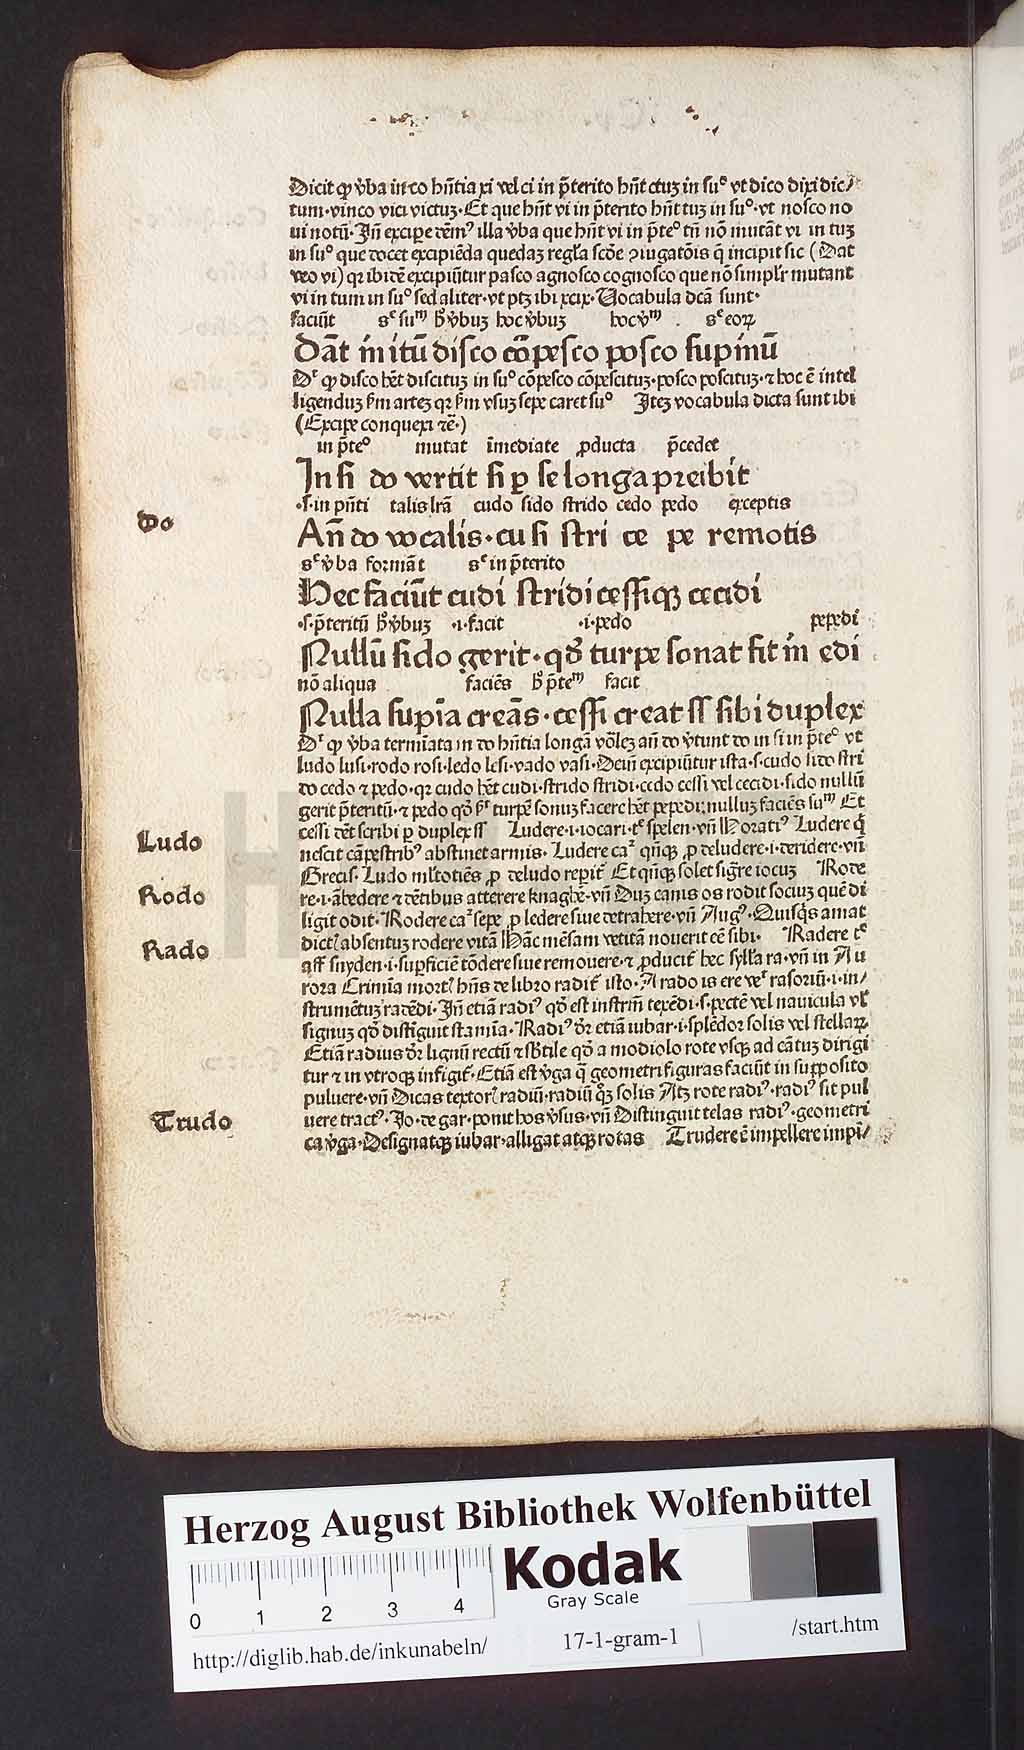 Dicit qꝫ v̄ba in co hn̄tia xi vel ci in p̄terito hn̄t ctuꝫ in suº vt dico dixi dic/
tum·vinco vici victuꝫ·Et que hn̄t vi in p̄terito hn̄t tuꝫ in suº·vt nosco no
ui notū·Jn̄ excipe tēmꝰ illa v̄ba que hn̄t vi in p̄teº tn̄ nō mutāt vi in tuꝫ
in suº que docet excipiēda quedaꝫ regl̄a scd̄e ɔiugatōis q̄ incipit sic (Dat
veo vi) qꝛ ibidē excipiūtur pasco agnosco cognosco que nō simplr̄ mutant
vi in tum in suº sed aliter·vt ptꝫ ibi xcix·Uocabula dcā sunt·
faciūt sᶜ suᵐ hꝰ v̄buꝫ hoc v̄buꝫ hoc vᵐ . sᶜ eoꝝ
Dāt in itū disco cōpesco posco supinū
Dʳ qꝫ disco hēt discituꝫ in suº cōpesco cōpescituꝫ·posco poscituꝫ·⁊ hoc ē intel
ligenduꝫ ẜm arteꝫ qꝛ ẜm vsuꝫ sepe caret suº Jteꝫ vocabula dicta sunt ibi
(Excipe conquexi ⁊ē·)
in p̄teº mutat īmediate ꝓducta p̄cedet
In si do vertit si ꝑ se longa preibit
·s·in pn̄ti talis lrā cudo sido strido cedo pedo exceptis
do
An̄ do vocalis·cu si stri ce pe remotis
sᶜ v̄ba formāt sᶜ in p̄terito
Hec faciūt cudi stridi cessiqꝫ cecidi
·s·p̄teritū hꝰ v̄buꝫ ·i·facit ·i·pedo pepedi
Nullū sido gerit·qd̄ turpe sonat fit in edi
nō aliqua faciēs hꝰ p̄teᵐ facit
Nulla supīa creās·cessi creat ss sibi duplex
Dʳ qꝫ v̄ba termīata in do hn̄tia longā vōleꝫ an̄ do v̄tunt do in si in p̄teº vt
ludo lusi·rodo rosi·ledo lesi·vado vasi·Deīn excipiūtur ista·s·cudo sido stri
do cedo ⁊ pedo·qꝛ cudo hēt cudi·strido stridi·cedo cessi vel cecidi·sido nullū
gerit p̄teritū·⁊ pedo qd̄ ẜʳ turpē sonuꝫ facere hēt pepedi;nulluꝫ faciēs suᵐ Et
Ludo
cessi dēt scribi ꝑ duplex ss Ludere·i·iocari·tᶜ spelen·vn̄ Horatiꝰ Ludere q̄
nescit cāpestribꝰ abstinet armis· Ludere caʳ qn̄qꝫ ꝓ deludere·i·deridere·vn̄
Grecis· Ludo ml̄totiēs ꝓ deludo reperit̄ Et qn̄qꝫ solet sig̅re iocuꝫ Rode
Rodo
re·i·ābedere ⁊ dētibus atterere knaghē·vn̄ Duꝫ canis os rodit sociuꝫ quē di
ligit odit·Rodere caʳ sepe ꝓ ledere siue detrahere·vn̄ Augꝰ·Quisq̄s amat
dict̄ absentuꝫ rodere vitā Hāc mēsam vetitā nouerit eē sibi· Radere tᶜ
Rado
aff snyden·i·supficiē tōdere siue remouere·⁊ ꝓducit̄ hec sylla ra·vn̄ in Au
rora Crimīa mort̄ hn̄s de libro radit̄ isto·A rado is ere veʳ rasoriū·i·in/
strumētuꝫ radēdi·Jn̄ etiā radiꝰ qd̄ est instrm̄ texēdi·s·pectē vel nauicula vl̄
signuꝫ qd̄ distīguit stamīa·Radiꝰ d̄r etiā iubar·i·splēdor solis vel stellaꝝ
Etiā radius d̄r lignū rectū ⁊ sb̄tile qd̄ a modiolo rote vsqꝫ ad cātuꝫ dirigi
tur ⁊ in vtroqꝫ infigit̄·Etiā est v̄ga q̄ geometri figuras faciūt in supposito
puluere·vn̄ Dicas textor̄ radiū·radiū qꝫ solis Atꝫ rote radiꝰ·radiꝰ sit pul
Trudo
uere tractꝰ·Jo·de gar·ponit hos v̄sus·vn̄ Distinguit telas radiꝰ·geometri
ca v̄ga·Designatqꝫ iubar·alligat atqꝫ rotas Trudere ē impellere impī/
Herzog August Bibliothek Wolfenbüttel
Kodak
Gray Scale
0 1 2 3 4
http://diglib.hab.de/inkunabeln/ 17-1-gram-1 /start.htm